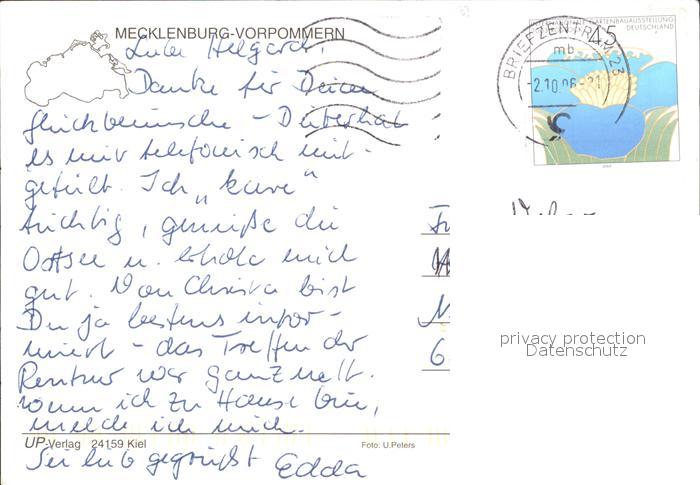 MECKLENBURG-VORPOMMERN
Liebe Helgard!
Danke für Deine
Glückwünsche – Dieter hat
es mir telefonisch mit-
geteilt. Ich „kure“
tüchtig, genieße die
Ostsee u. erhole mich
gut. Von Christa bist
Du ja bestens infor-
miert – das Treffen der
Rentner war ganz nett.
Wenn ich zu Hause bin,
melde ich mich.
UP-Verlag 24159 Kiel
Foto: U.Peters
Sei lieb gegrüßt Edda
GARTENBAUAUSSTELLUNG
DEUTSCHLAND
45
BRIEFZENTRUM 23
mb
-2.10.06-21
6
privacy protection
Datenschutz